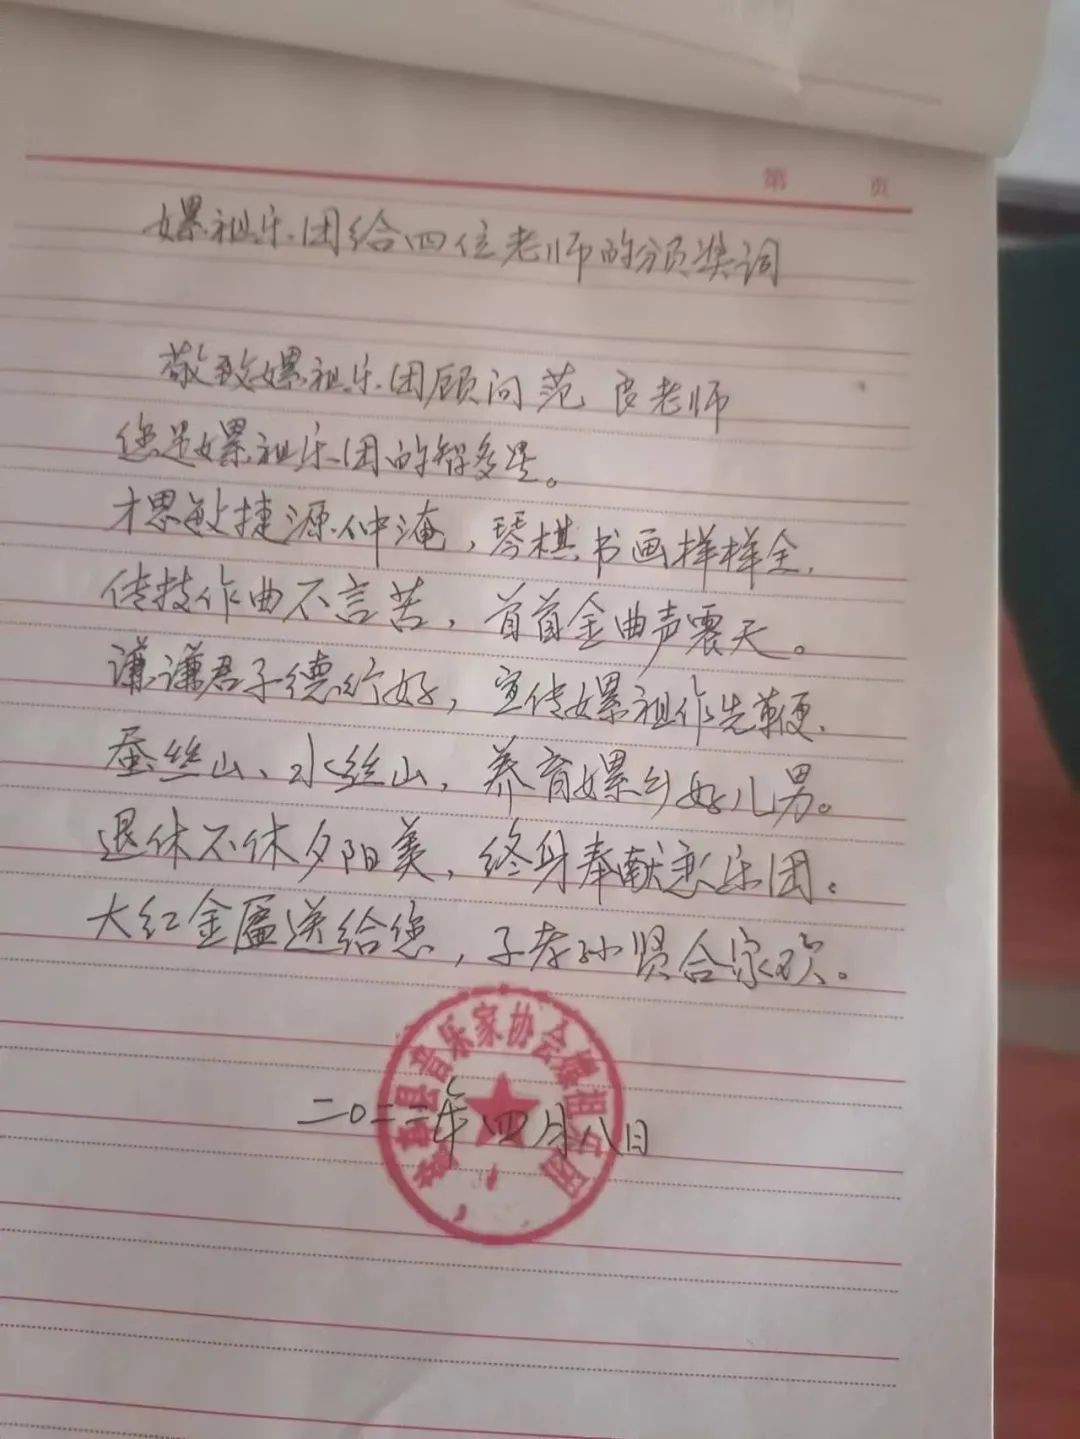 第 页
嫘祖乐团给四位老师的颁奖词
敬致嫘祖乐团顾问范 良老师
您是嫘祖乐团的智多星。
才思敏捷源仲淹，琴棋书画样样全，
传技作曲不言苦，首首金曲声震天。
谦谦君子德行好，宣传嫘祖作先鞭，
蚕丝山、水丝山，养育嫘乡好儿男。
退休不休夕阳美，终身奉献恋乐团。
大红金匾送给您，子孝孙贤合家欢。
县音乐家协会嫘祖乐团
二〇二二年四月八日